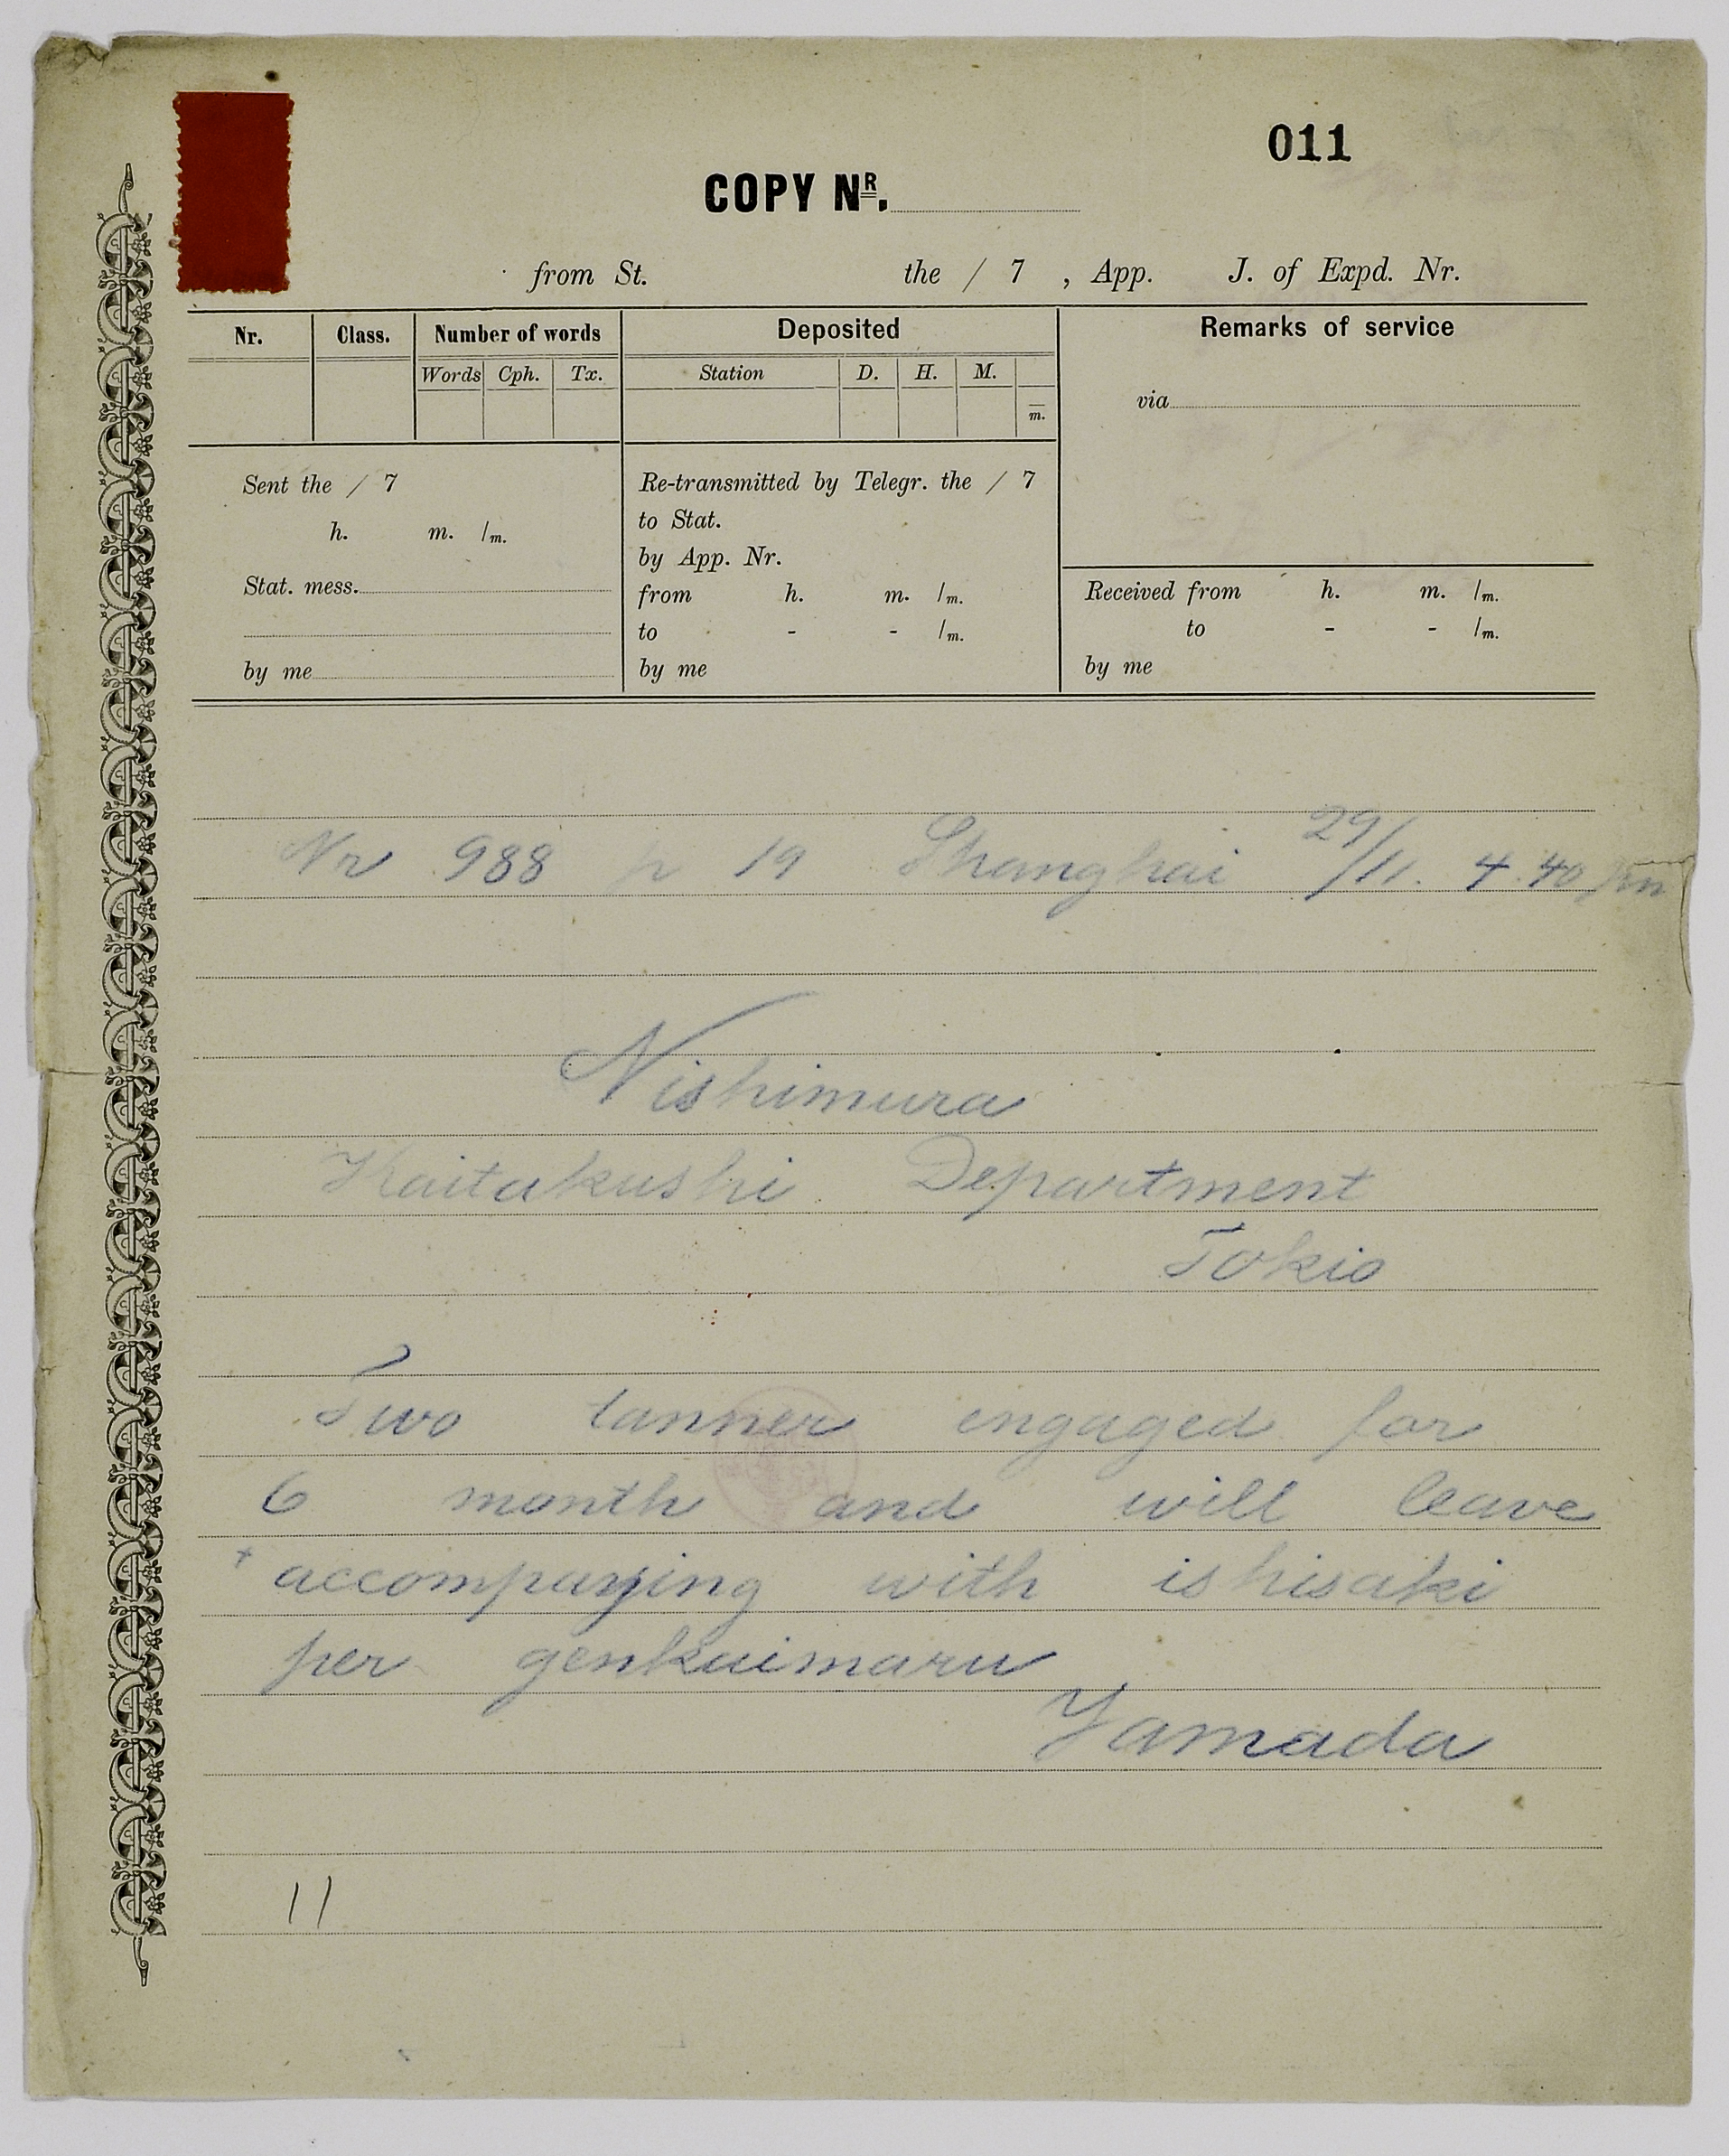 011
COPY NR.
from St. the / 7 , App. J. of Expd. Nr.
Nr. Class. Number of words Deposited Remarks of service
Words Cph. Tx. Station D. H. M.
m.
via
Sent the / 7
h. m. /m.
Stat. mess.
by me
Re-transmitted by Telegr. the / 7
to Stat.
by App. Nr.
from h. m. /m.
to - - /m.
by me
Received from h. m. /m.
to - - /m.
by me
Nr 988 19 Shanghai 29/11. 4.40 pm
Nishimura
Kaitakushi Department
Tokio
Two tanner engaged for
6 month and will leave
accompanying with ishisaki
per genkaimaru
Yamada
11